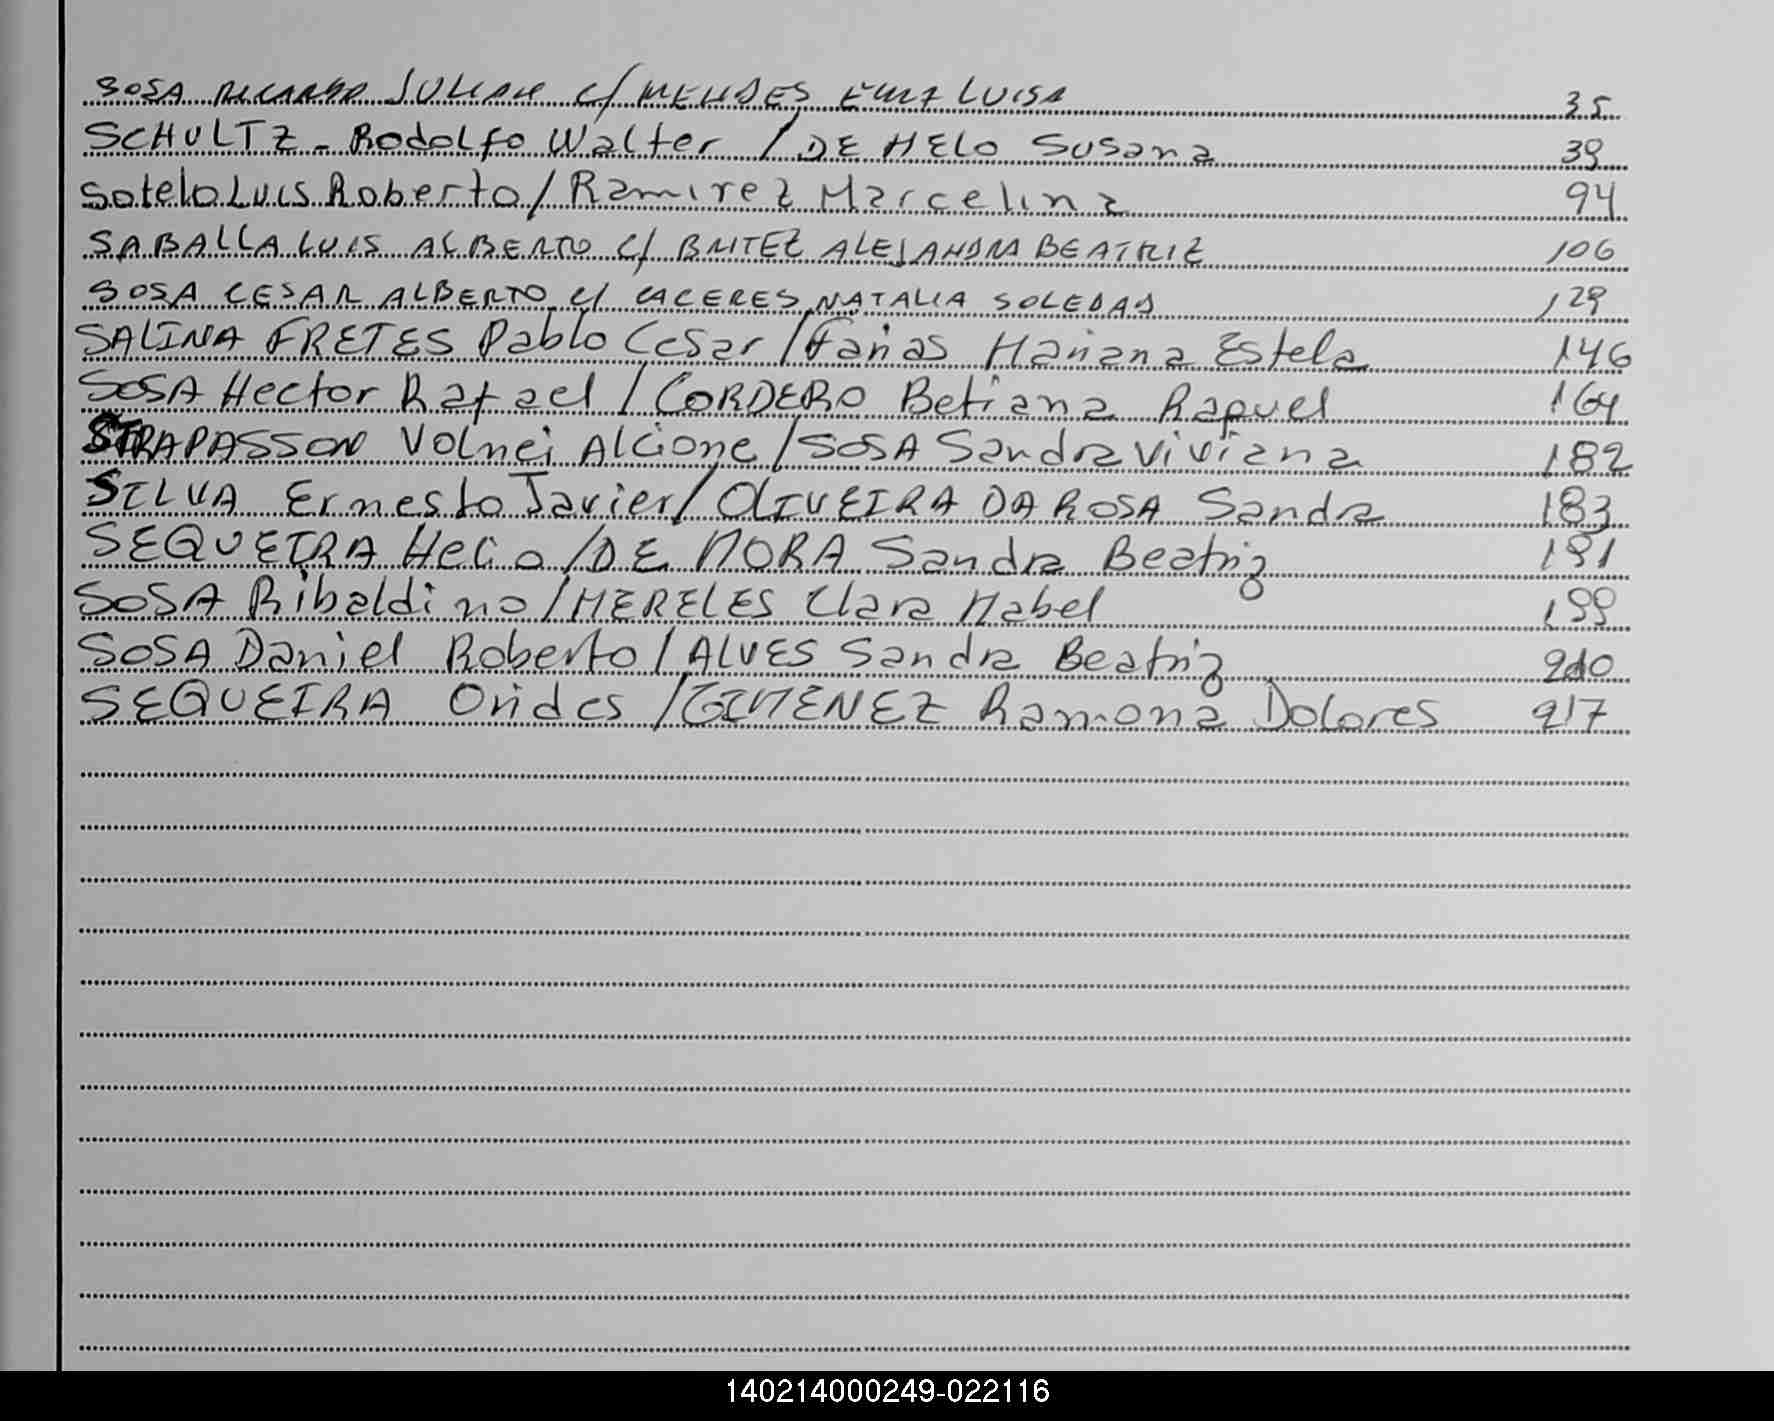 SOSA RICARDO JULIAN C/ MENDES LUISA 35
SCHULTZ - Rodolfo Walter / DE MELO Susana 39
Sotelo Luis Roberto / Ramirez Marcelina 94
SABALLA LUIS ALBERTO C/ BRITEZ ALEJANDRA BEATRIZ 106
SOSA CESAR ALBERTO C/ CACERES NATALIA SOLEDAD 129
SALINA FRETES Pablo Cesar / Farias Mariana Estela 146
SOSA Hector Rafael / CORDERO Betiana Raquel 164
STRAPASSON Volnei Alcione / SOSA Sandra Viviana 182
SILVA Ernesto Javier / OLIVEIRA DA ROSA Sandra 183
SEQUEIRA Helio / DE MORA Sandra Beatriz 191
SOSA Ribaldino / MERELES Clara Mabel 199
SOSA Daniel Roberto / ALVES Sandra Beatriz 210
SEQUEIRA Orides / GIMENEZ Ramona Dolores 217
140214000249-022116